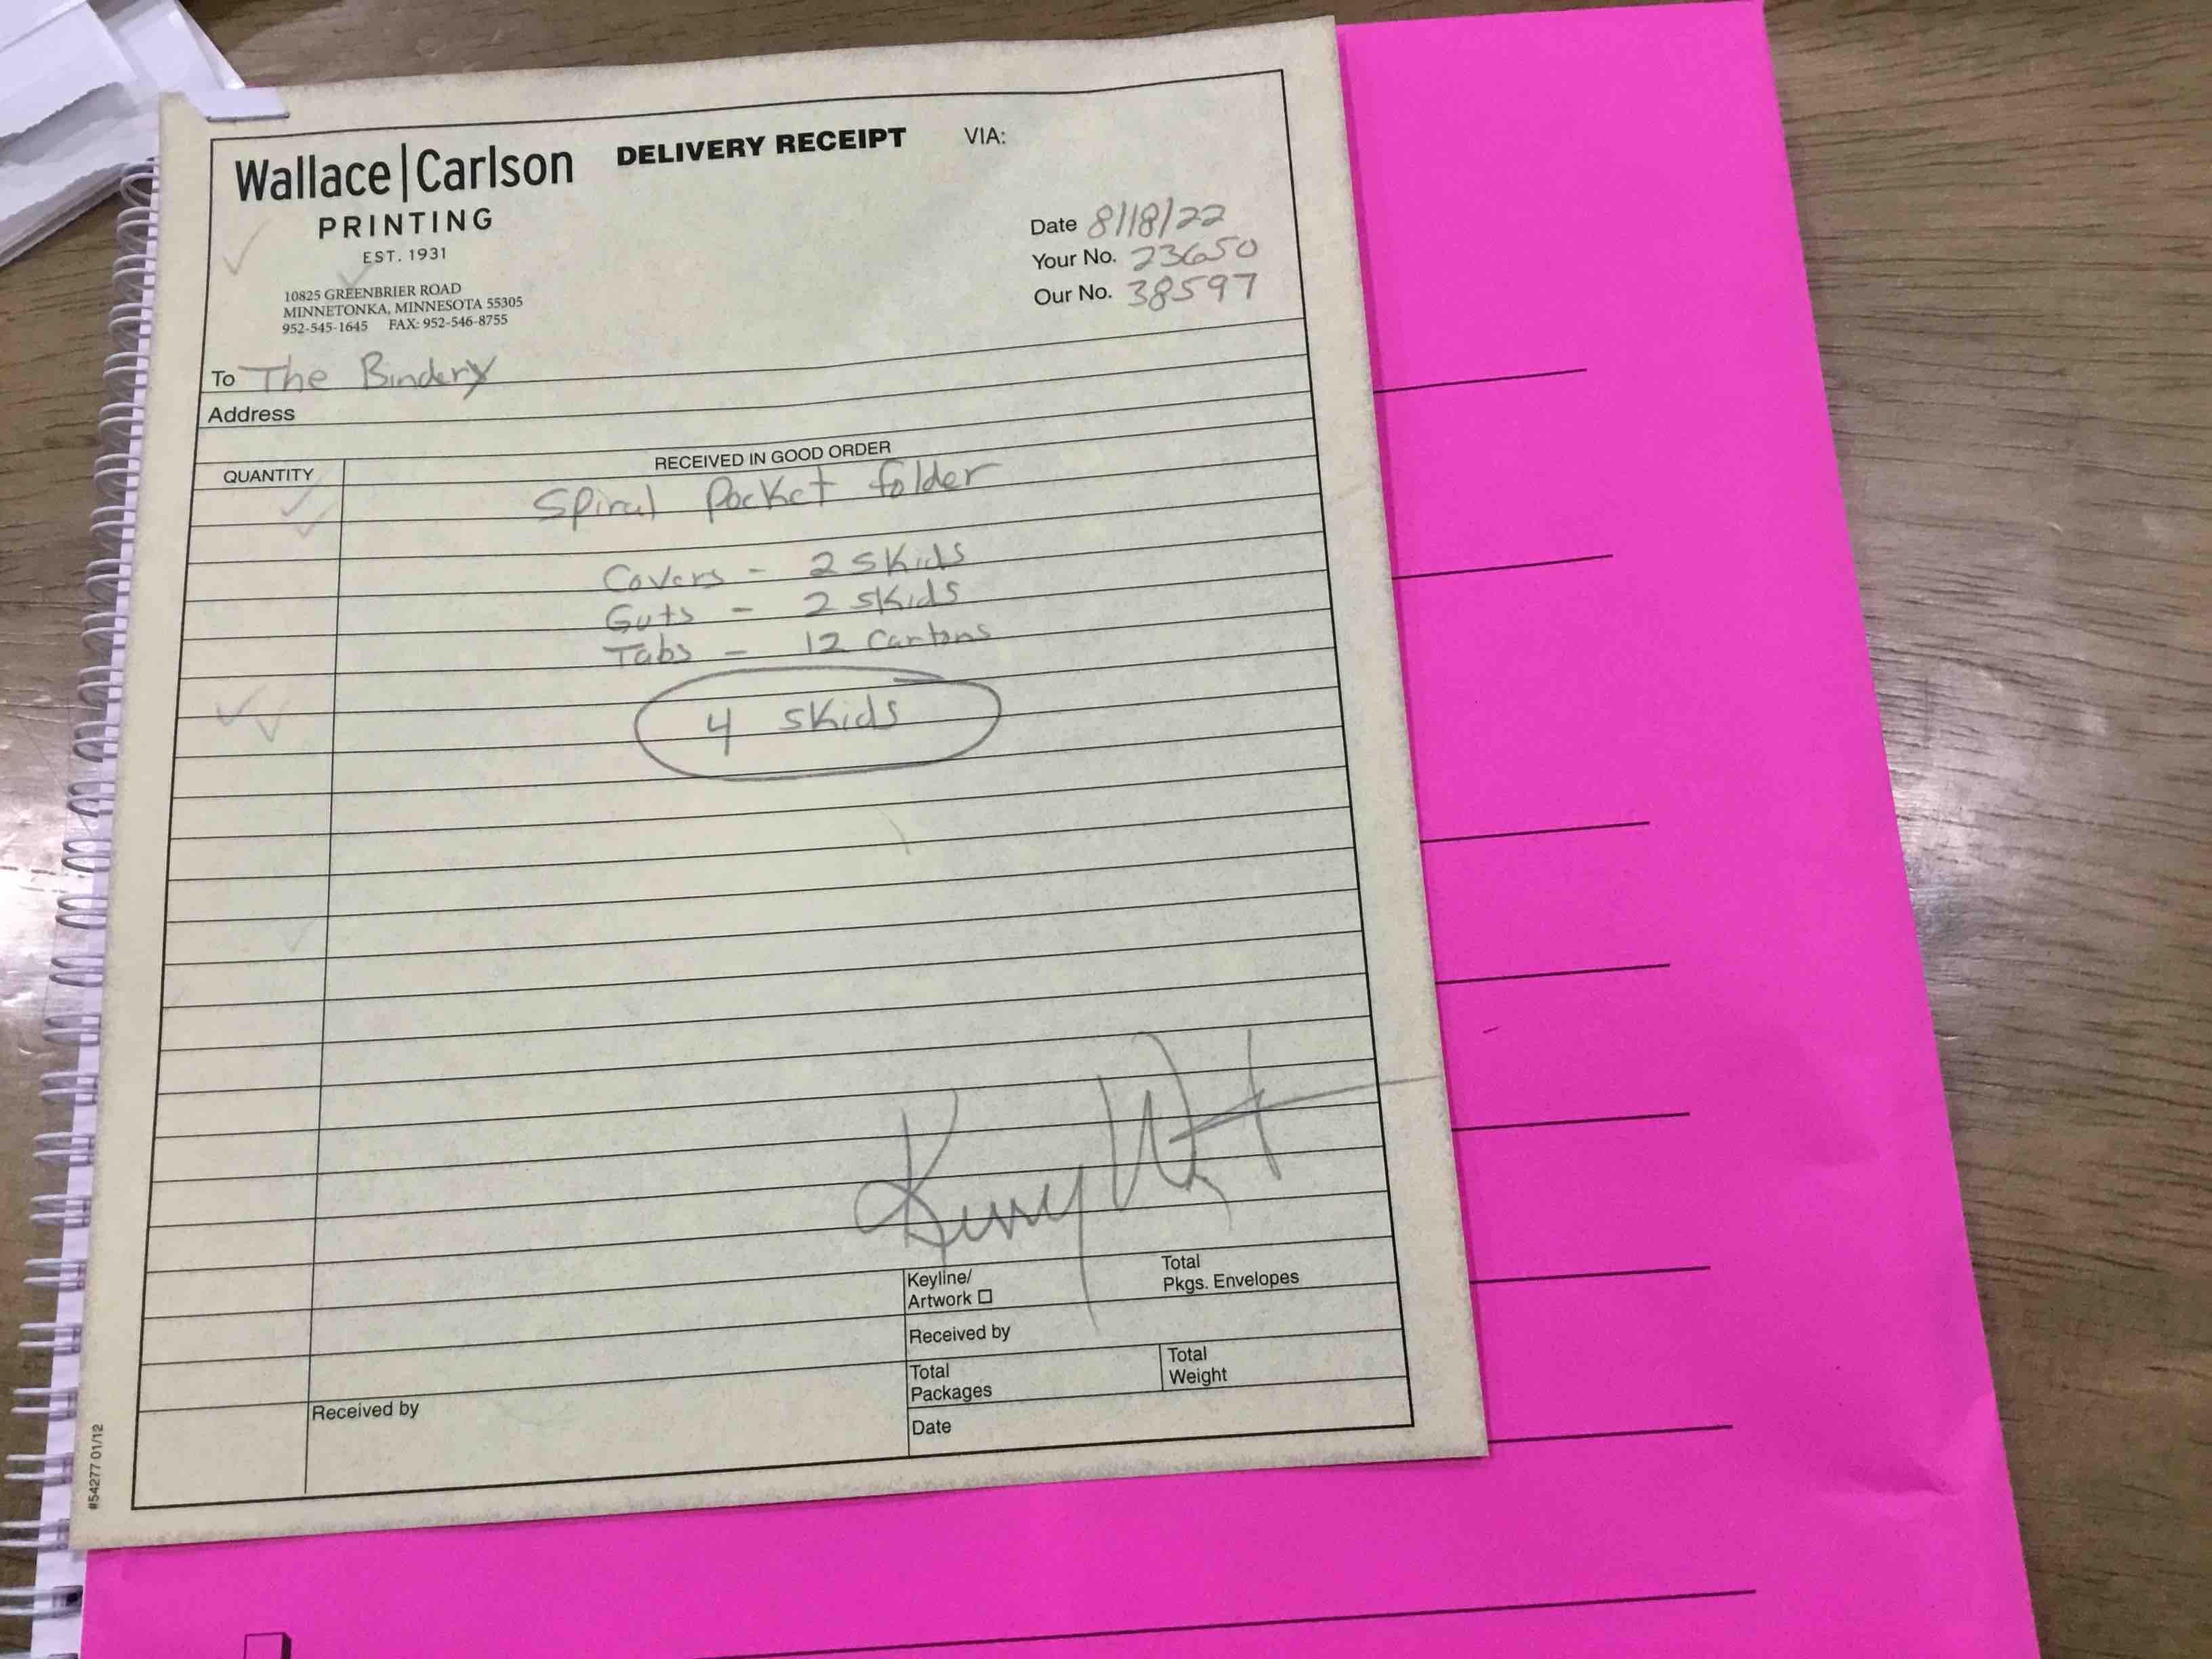 Wallace|Carlson
PRINTING
EST. 1931
10825 GREENBRIER ROAD
MINNETONKA, MINNESOTA 55305
952-545-1645 FAX: 952-546-8755
DELIVERY RECEIPT VIA:
Date 8/18/22
Your No. 23650
Our No. 38597
To The Bindery
Address
QUANTITY RECEIVED IN GOOD ORDER
Spiral Pocket folder
Covers - 2 skids
Guts - 2 skids
Tabs - 12 Cartons
4 skids
Keyline/
Artwork
Total
Pkgs. Envelopes
Received by
Total
Packages
Total
Weight
Received by
Date
#54277 01/12